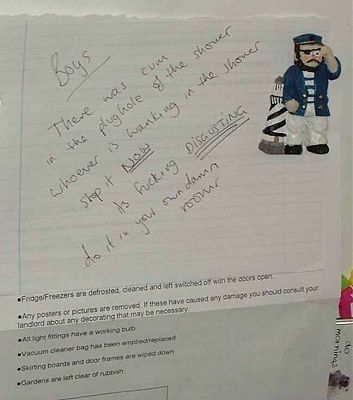 Boys
There was cum
in the plughole of the shower
whoever is wanking in the shower
stop it NOW
its fucking DISGUSTING
do it in your own damn
rooms
•Fridge/Freezers are defrosted, cleaned and left switched off with the doors open.
•Any posters or pictures are removed. If these have caused any damage you should consult your
landlord about any decorating that may be necessary.
•All light fittings have a working bulb
•Vacuum cleaner bag has been emptied/replaced
•Skirting boards and door frames are wiped down
•Gardens are left clear of rubbish
do